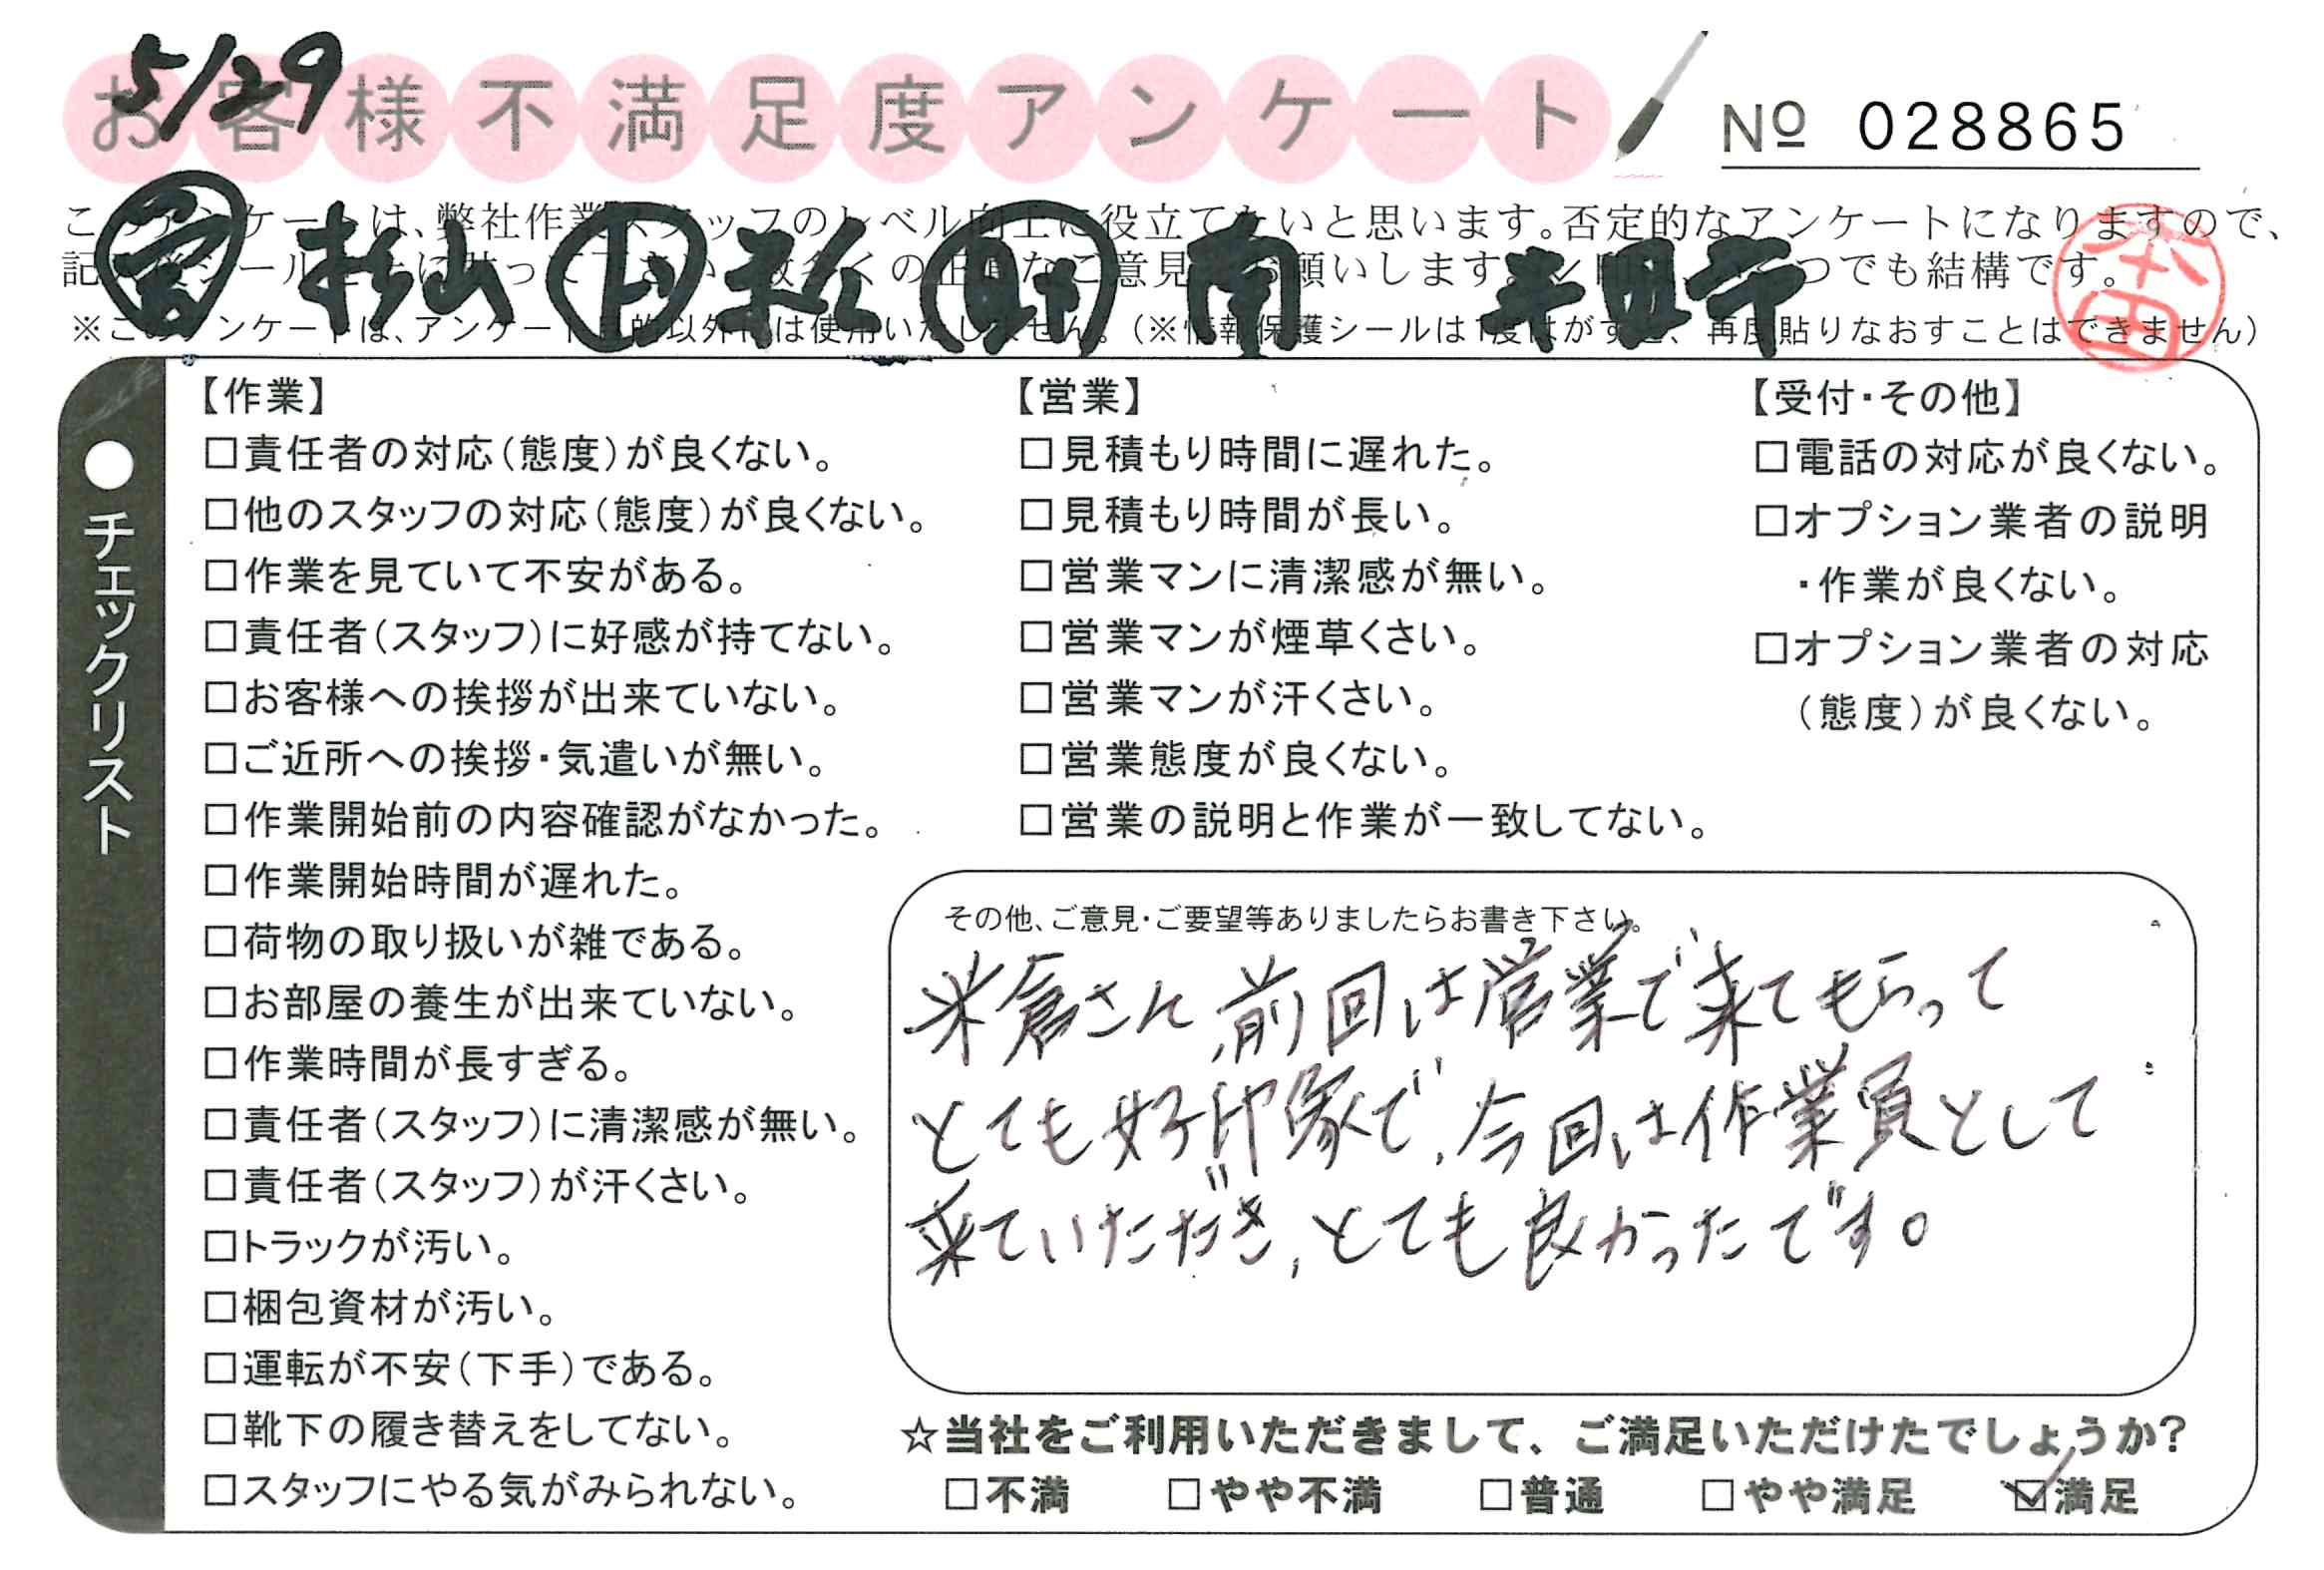 5/29
お客様不満足度アンケート
№ 028865
営 杉山 南 半田市
このアンケートは、弊社作業スタッフのレベル向上に役立てたいと思います。否定的なアンケートになりますので、
願いします。 つでも結構です。
※このアンケートは、アンケート目的以外には使用いたしません。(※情報保護シールは1度はがすと、再度貼りなおすことはできません)
本田
●チェックリスト
【作業】
□責任者の対応(態度)が良くない。
□他のスタッフの対応(態度)が良くない。
□作業を見ていて不安がある。
□責任者(スタッフ)に好感が持てない。
□お客様への挨拶が出来ていない。
□ご近所への挨拶・気遣いが無い。
□作業開始前の内容確認がなかった。
□作業開始時間が遅れた。
□荷物の取り扱いが雑である。
□お部屋の養生が出来ていない。
□作業時間が長すぎる。
□責任者(スタッフ)に清潔感が無い。
□責任者(スタッフ)が汗くさい。
□トラックが汚い。
□梱包資材が汚い。
□運転が不安(下手)である。
□靴下の履き替えをしてない。
□スタッフにやる気がみられない。
【営業】
□見積もり時間に遅れた。
□見積もり時間が長い。
□営業マンに清潔感が無い。
□営業マンが煙草くさい。
□営業マンが汗くさい。
□営業態度が良くない。
□営業の説明と作業が一致してない。
【受付・その他】
□電話の対応が良くない。
□オプション業者の説明
・作業が良くない。
□オプション業者の対応
(態度)が良くない。
その他、ご意見・ご要望等ありましたらお書き下さい。
米倉さん、前回は営業で来てもらって
とても好印象で、今回は作業員として
来ていただき、とても良かったです。
☆当社をご利用いただきまして、ご満足いただけたでしょうか?
□不満 □やや不満 □普通 □やや満足 ☑満足